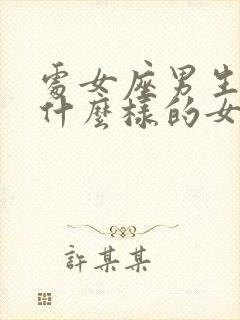 處女座男生
什麼樣的女
許某某